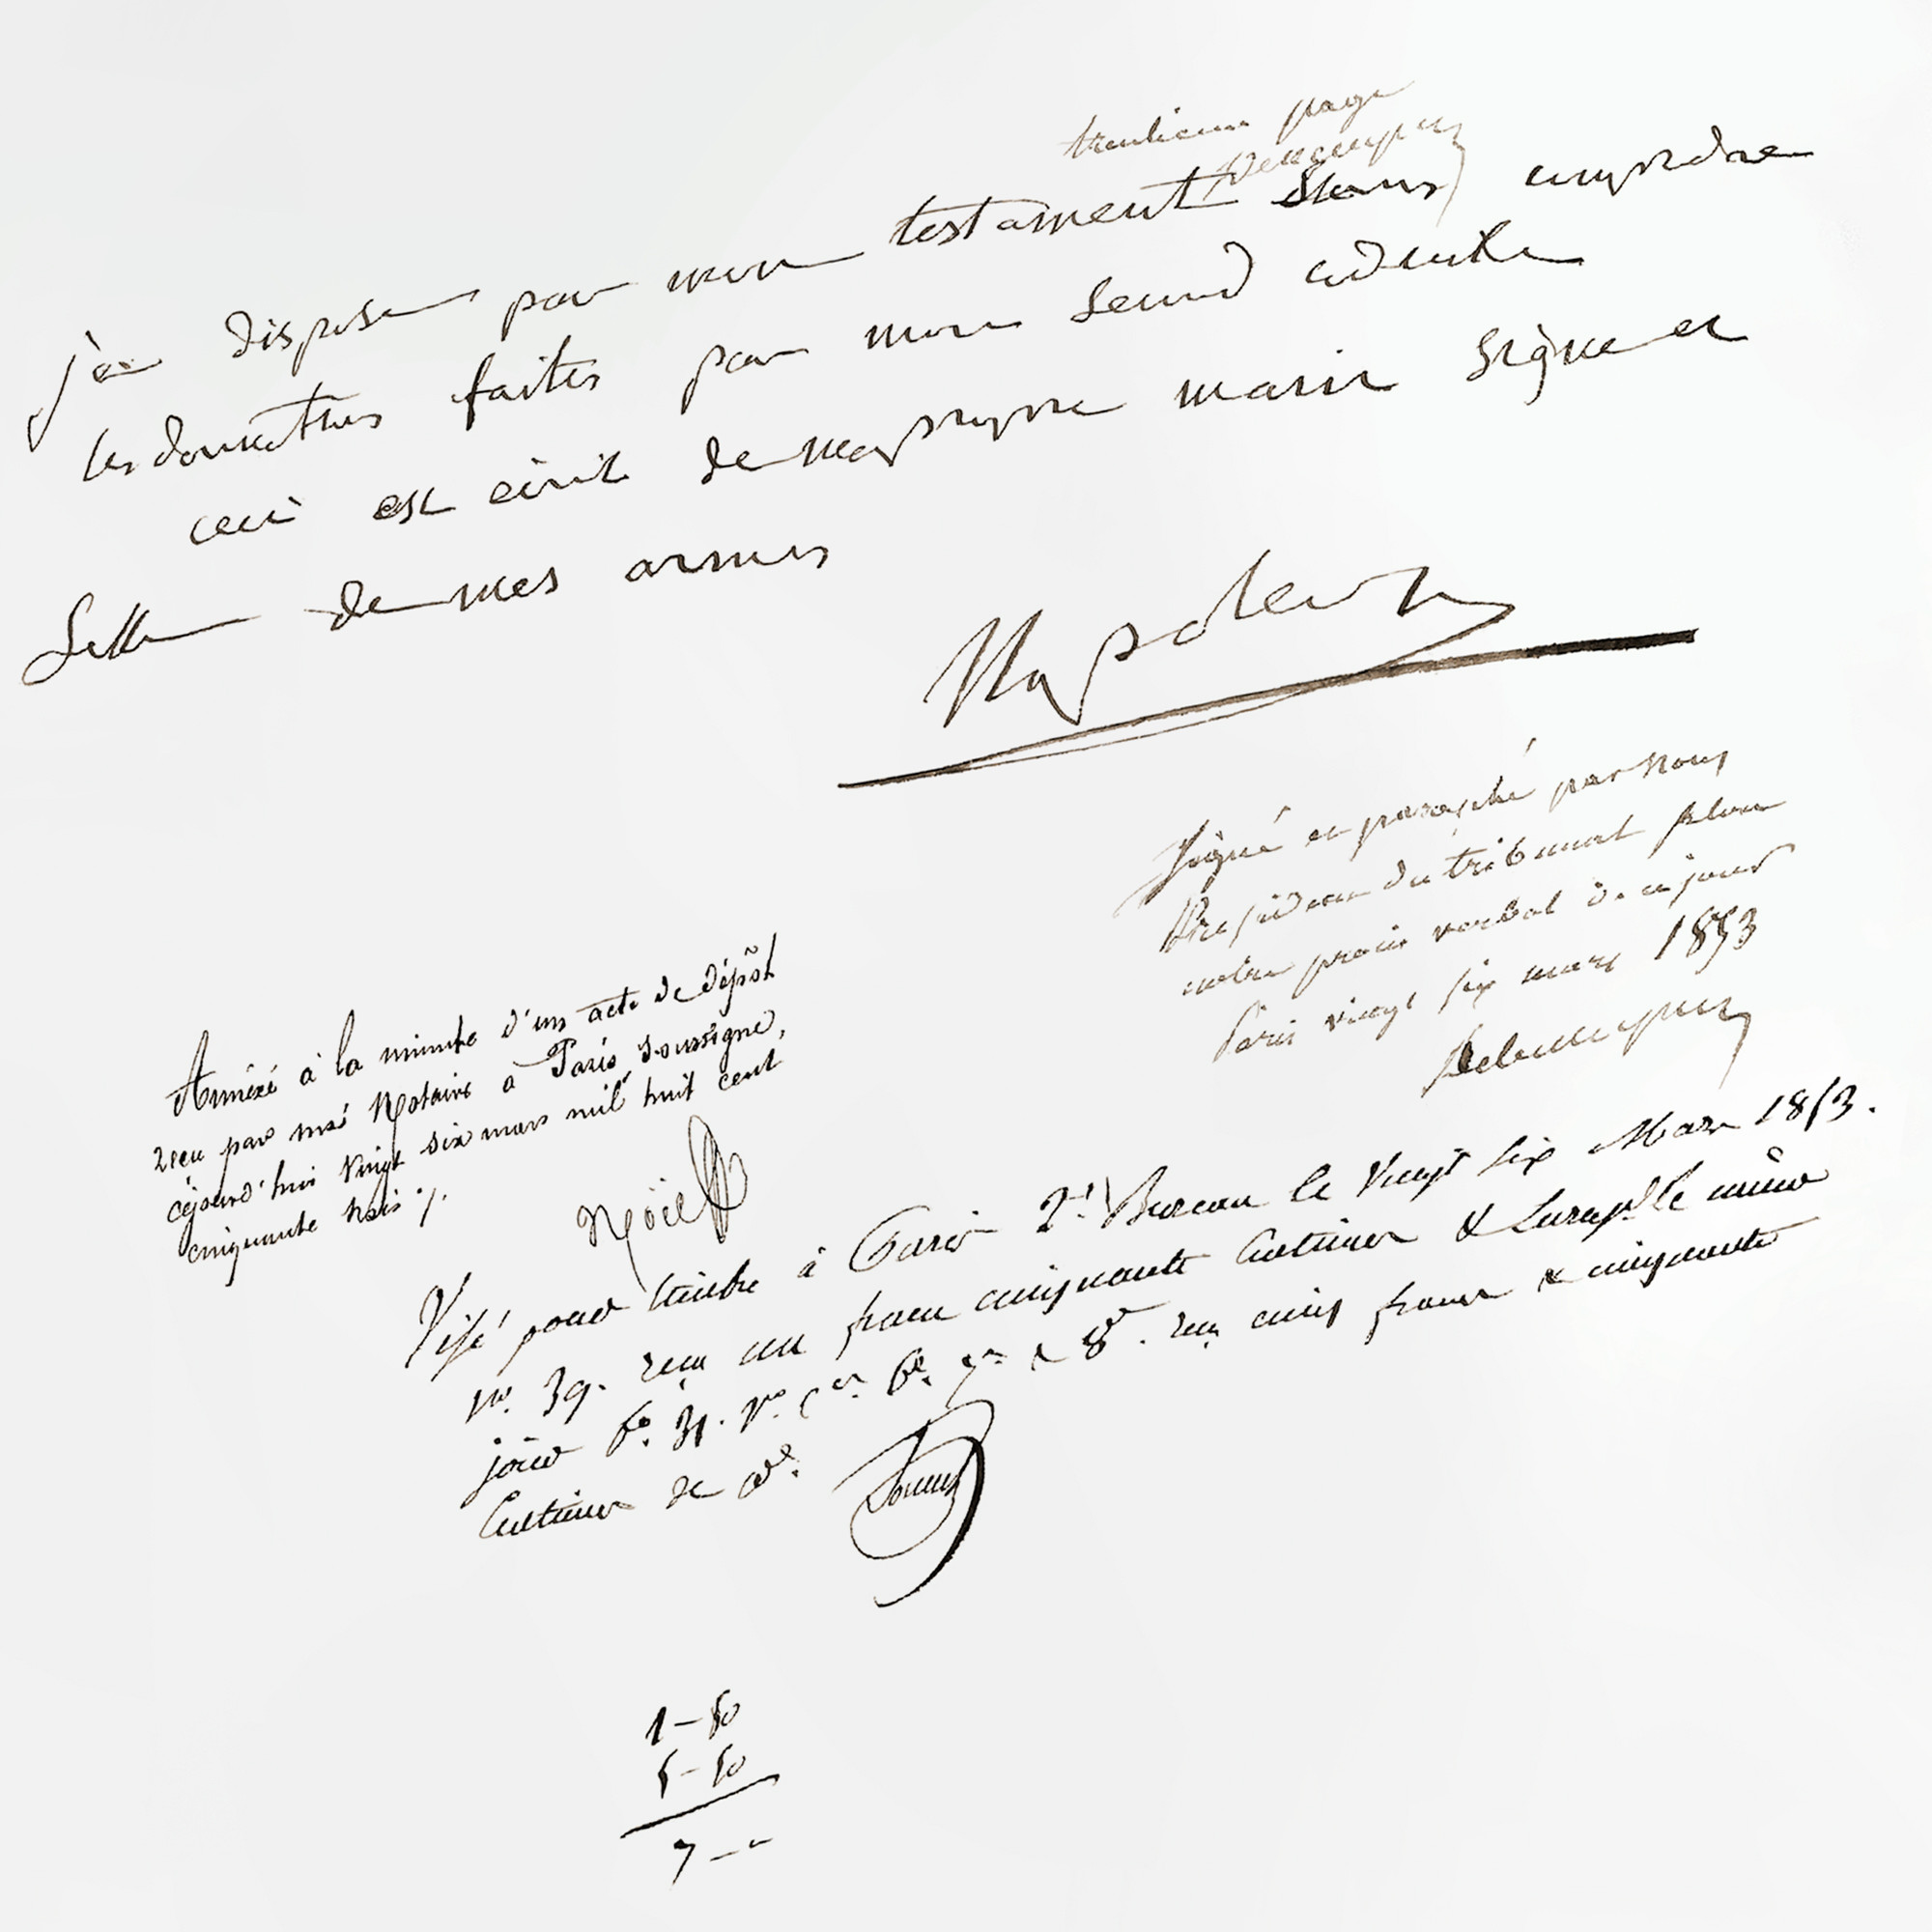 page
Debelleyme
j'ai dispose par mon testament sans comprendre
les donnations faites par mon second codicile
ceci est écrit de ma propre main signé et
scellé de mes armes
Napoleon
Signé et paraphé par nous
Président du tribunal selon
notre procès verbal de ce jour
Paris vingt six mars 1853
Debelleyme
Annéxé à la minute d'un acte de dépôt
reçu par moi Notaire à Paris soussigné,
cejourd'hui vingt six mars mil huit cent
cinquante trois ./.
Noël
Visé pour timbre à Paris 2e Bureau le vingt six Mars 1853.
no. 39. reçu un franc cinquante Centimes & Enregé le même
jour fo. 31. vo. Cer 6e. 7e & 8e. reçu cinq francs & cinquante
Centimes de de.
1 – 50
5 – 50
7 – "